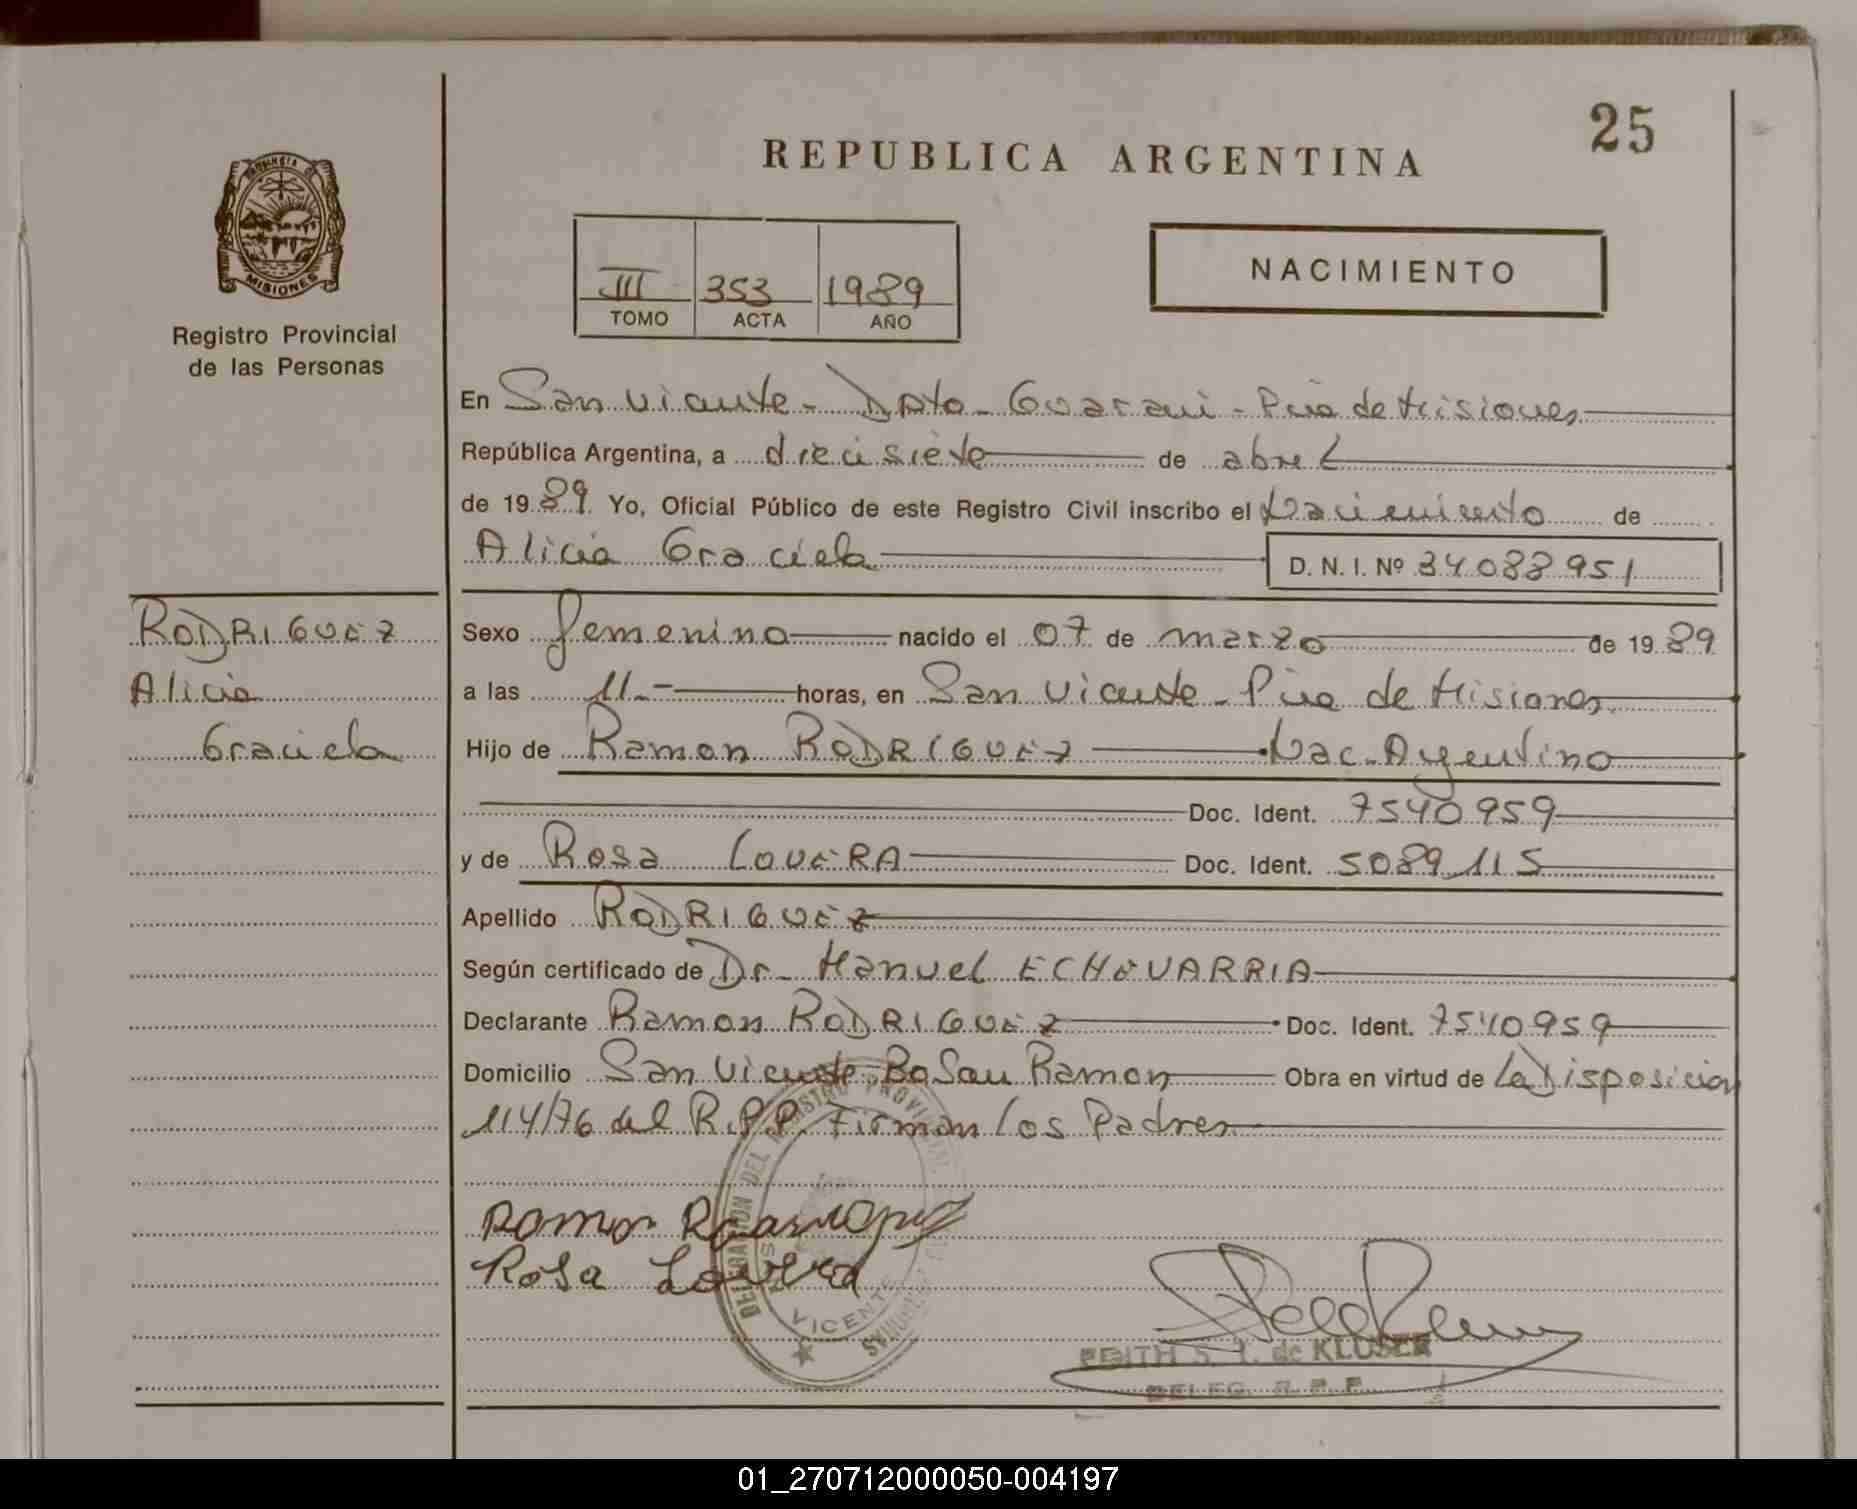 25
REPUBLICA ARGENTINA
PROVINCIA DE
MISIONES
Registro Provincial
de las Personas
III 353 1989
TOMO ACTA AÑO
NACIMIENTO
En San Vicente - Dpto - Guarani - Pcia de Misiones
República Argentina, a diecisiete de abril
de 1989. Yo, Oficial Público de este Registro Civil inscribo el Nacimiento de
Alicia Graciela D. N. I. Nº 34088951
RODRIGUEZ
Alicia
Graciela
Sexo femenino nacido el 07 de marzo de 1989
a las 11.- horas, en San Vicente - Pcia de Misiones
Hijo de Ramon RODRIGUEZ Nac. Argentino
Doc. Ident. 7540959
y de Rosa LOVERA Doc. Ident. 5089115
Apellido RODRIGUEZ
Según certificado de Dr. Manuel ECHEVARRIA
Declarante Ramon RODRIGUEZ Doc. Ident. 7540959
Domicilio San Vicente Bo San Ramon Obra en virtud de La Disposicion
114/76 del R.P.P. Firman los Padres
Ramon
Rosa Lovera
DELEGACION DEL REGISTRO PROVINCIAL
VICENTE
MISIONES
EDITH S. de KLUSER
DELEG. R. P. P.
01_270712000050-004197